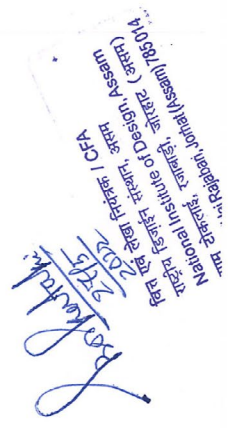 27/5
2022
वित्त एवं लेखा नियंत्रक / CFA
राष्ट्रीय डिज़ाईन संस्थान, असम
National Institute of Design, Assam
राजाबारी, जोरहाट (असम)
Rajabari, Jorhat (Assam) 785014